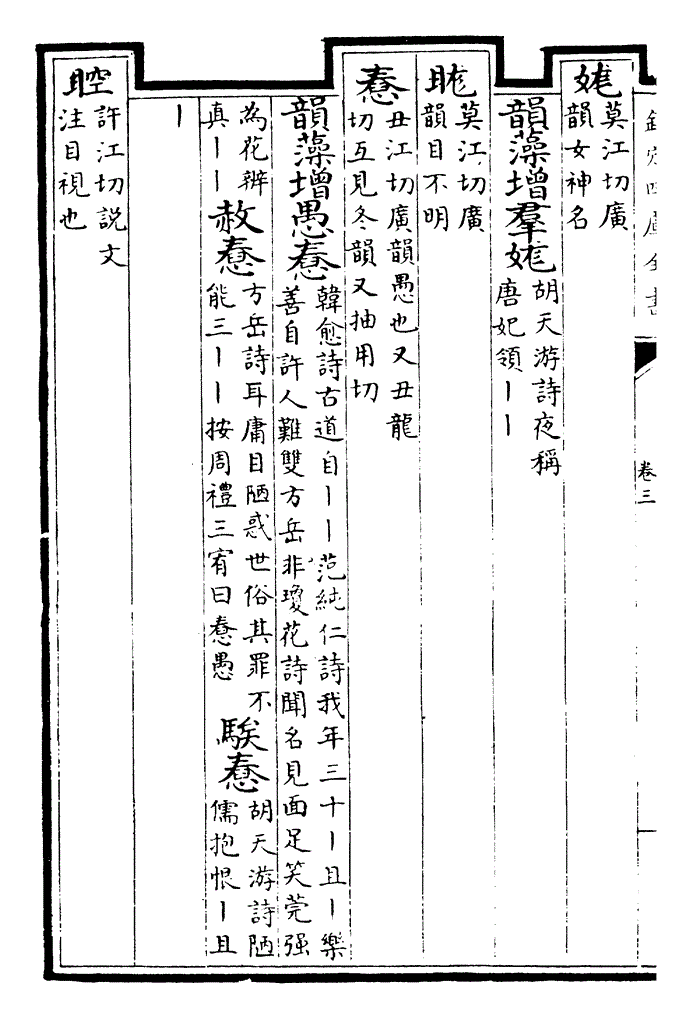 欽定四庫全書
卷三
娏
莫江切廣
韻女神名
韻藻增羣娏
胡天游詩夜稱
唐妃領丨丨
𥆙
莫江切廣
韻目不明
惷
丑江切廣韻愚也又丑龍
切互見冬韻又抽用切
韻藻增愚惷
韓愈詩古道自丨丨范純仁詩我年三十丨且丨樂
善自許人難雙方岳非瓊花詩聞名見面足笑莞强
為花辨
真丨丨
赦惷
方岳詩耳庸目陋惑世俗其罪不
能三丨丨按周禮三宥曰惷愚
騃惷
胡天游詩陋
儒抱恨丨且
丨
許江切説文
注目視也